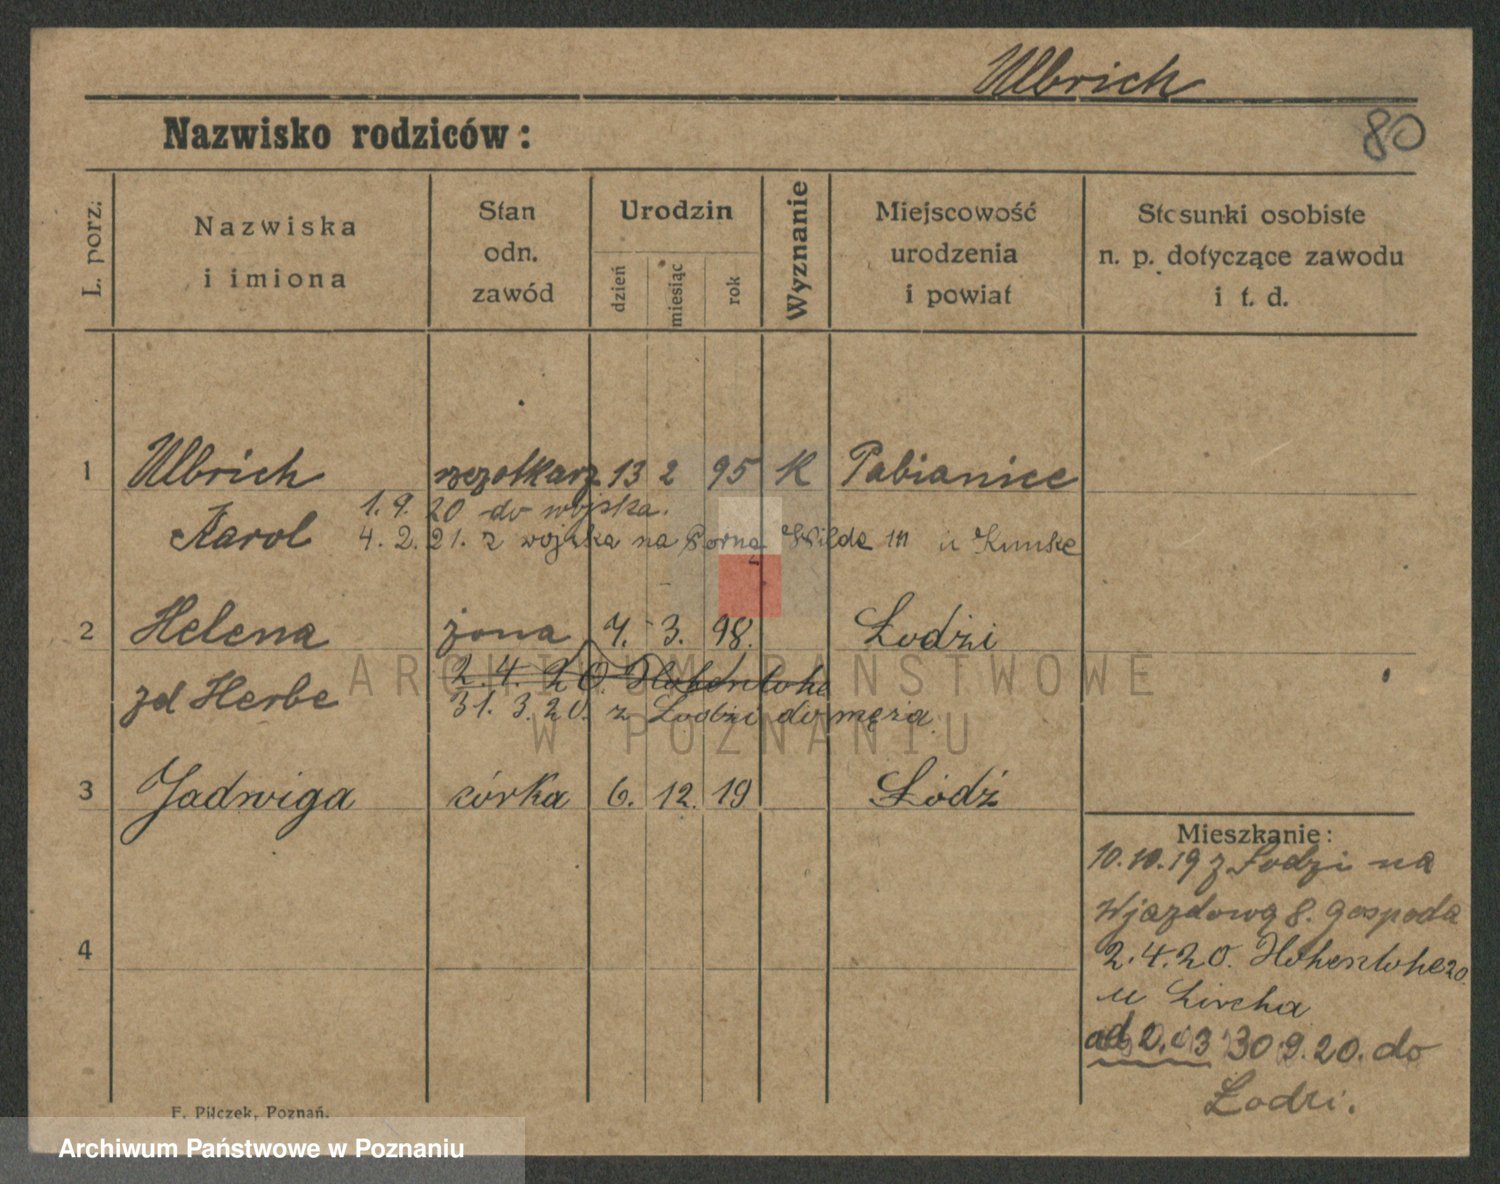 Ulbrich
80
Nazwisko rodziców:
L. porz.
Nazwiska
i imiona
Stan
odn.
zawód
Urodzin
dzień
miesiąc
rok
Wyznanie
Miejscowość
urodzenia
i powiat
Stosunki osobiste
n. p. dotyczące zawodu
i t. d.
1 Ulbrich 13 2 95 K Pabianice
1.9.20 do wojska.
Karol 4.2.21. z wojska na Wilda 111 u Kunske
2 Helena żona 7. 3. 98. Łodżi
2.4.20. Hohenlohe
zd Herbe 31.3.20. z Łodzi do męża
3 Jadwiga córka 6. 12. 19 Łódź
Mieszkanie:
10.10.19 z Łodzi na
Wjazdową 8. gospoda
4
2.4.20. Hohenlohe 20.
u Lircha
30.9.20. do
Łodzi.
F. Pilczek, Poznań.
ARCHIWUM PAŃSTWOWE
W POZNANIU
Archiwum Państwowe w Poznaniu